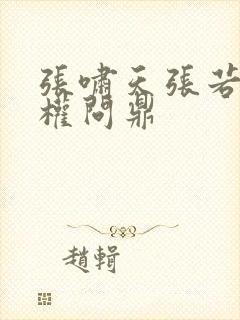 張嘯天張若
權問鼎
趙輯